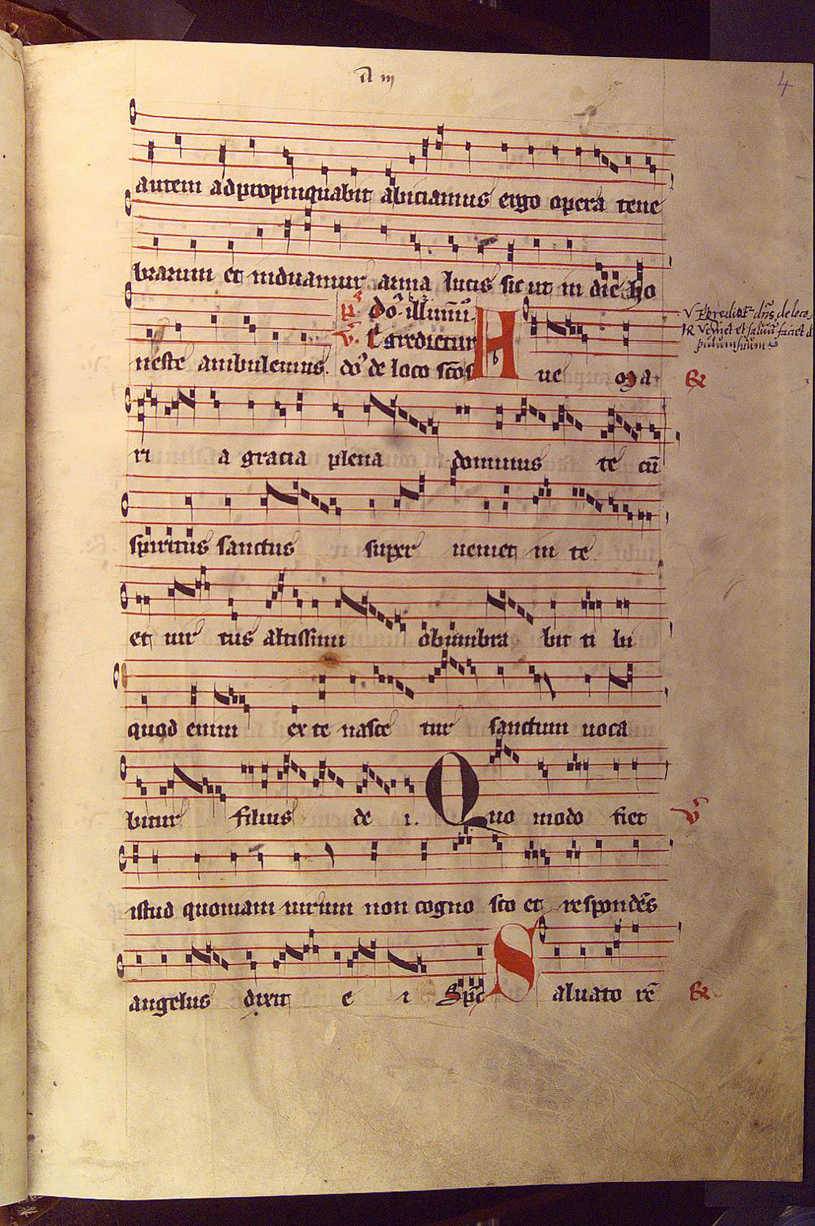 4
autem adpropinquabit abiciamus ergo opera tene
brarum et induamur arma lucis sic ut in die ho
p̄s do᷒ illumī
v̄ Egredietur
neste ambulemus. do᷒ de loco scōs
H ue ma R
ri a gracia plena dominus te cū
spiritus sanctus super ueniet in te
et uir tus altissimi obumbra bit ti bi
quod enim ex te nasce tur sanctum uoca
bitur filius de i. Quo modo fiet v̄
istud quoniam uirum non cogno sco et respondēs
angelus dixit e i Spc̄ Saluato rē R